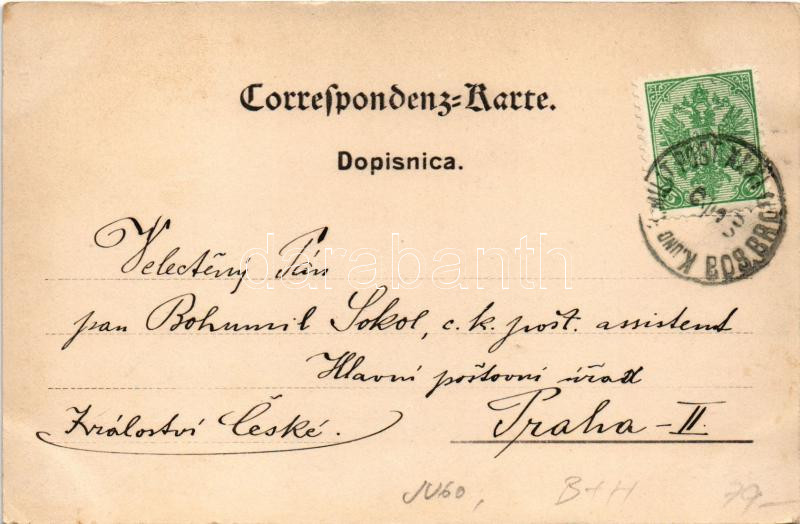 Correspondenz=Karte.
Dopisnica.
K.UND K. MILIT. POST
BOS. BROD
5
5
darabanth
Velectěný Pán
pan Bohumil Sokol, c. k. pošt. assistent
Hlavní poštovní úřad
Království České.
Praha - II.
JU60,
B+H
79—